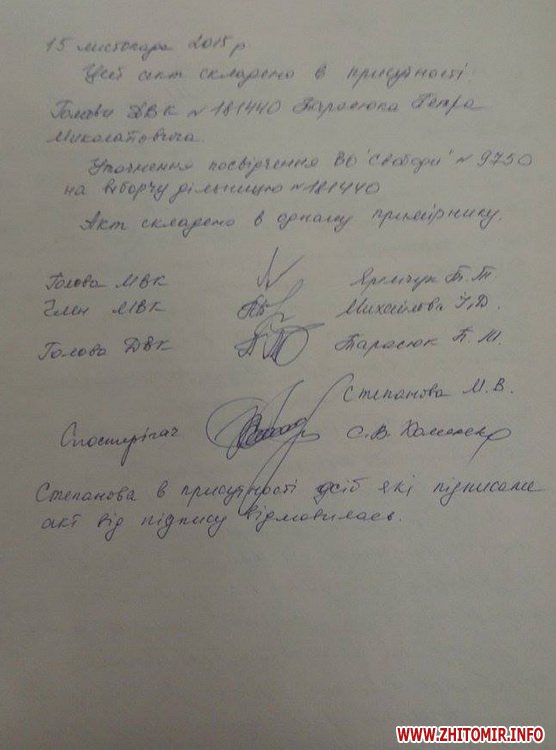 15 листопада 2015 р
Цей акт складено в присутності
Голови ДВК № 181440 Тарасюка Петра
Миколайовича.
Уточнення посвідчення ВО 'Свобода' № 9750
на виборчу дільницю № 181440
Акт складено в одному примірнику.
Голова МВК Яремчук Т. Т.
Член МВК Михайлова І.Д.
Голова ДВК Тарасюк П. М.
Степанова М. В.
Спостерігач С.В. Хоменко
Степанова в присутності осіб які підписали
акт від підпису відмовилась.
WWW.ZHITOMIR.INFO